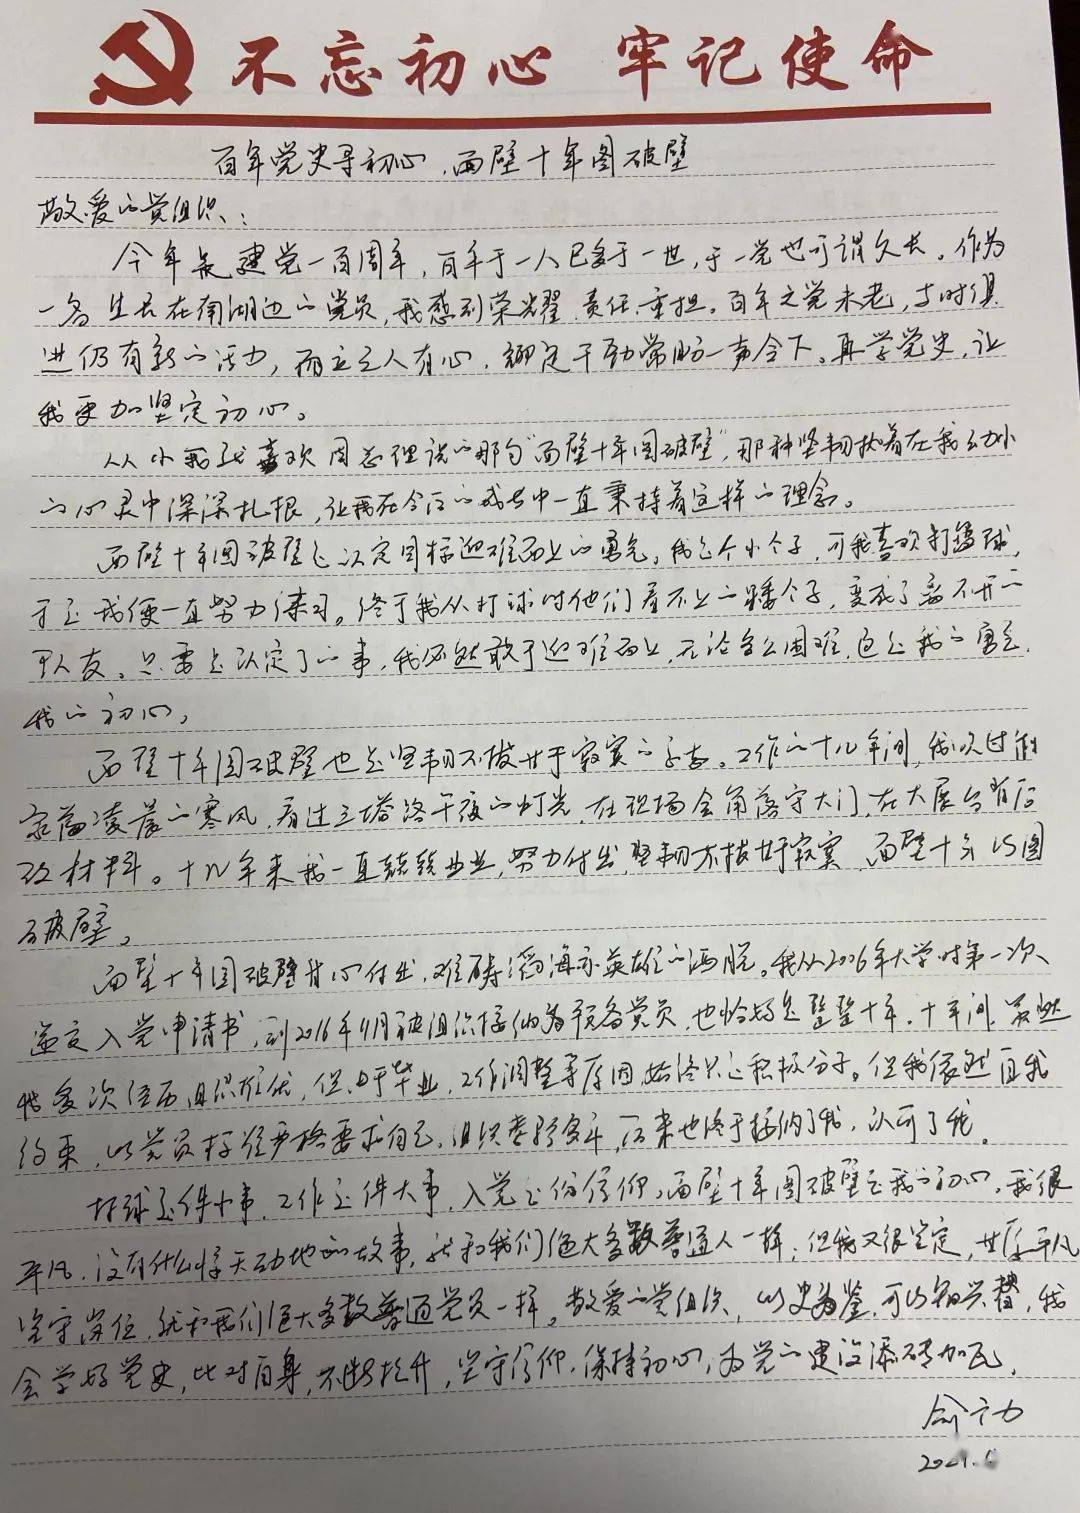 不忘初心 牢记使命
百年党史寻初心，面壁十年图破壁
敬爱的党组织：
今年是建党一百周年，百年于一人已多于一世，于一党也可谓久长。作为
一名生长在南湖边的党员，我感到荣耀、责任、重担。百年之党未老，与时俱
进仍有新的活力，而立之人有心，干劲常盼一声令下。再学党史，让
我更加坚定初心。
从小我就喜欢周总理说的那句“面壁十年图破壁”，那种坚韧执着在我幼小
的心灵中深深扎根，让我在今后的成长中一直秉持着这样的理念。
面壁十年图破壁是认定目标迎难而上的勇气。我是个小个子，可我喜欢打篮球，
于是我便一直努力练习。终于我从打球时他们看不上的矮个子，变成了离不开的
队友。只要是认定了的事，我必然敢于迎难而上，无论多么困难，这是我的勇气，
我的初心。
面壁十年图破壁也是坚韧不拔甘于寂寞的。工作的十几年间，我吹过
凌晨的寒风，看过三塔路午夜的灯光，在现场会角落守大门，在大展台背后
改材料。十几年来我一直兢兢业业，努力付出，坚韧不拔甘于寂寞，面壁十年以图
破壁。
面壁十年图破壁甘心付出，难酬蹈海亦英雄的洒脱。我从2006年大学时第一次
递交入党申请书，到2016年11月被组织接纳为预备党员，也恰好是整整十年。十年间，虽然
我多次经历组织推优，但由于毕业、工作调整等原因，始终只是积极分子。但我依然自我
约束，以党员标准严格要求自己，组织考验多年，后来也终于接纳了我，认可了我。
打球是件小事，工作是件大事，入党是份信仰，面壁十年图破壁是我的初心。我很
平凡，没有什么惊天动地的故事，就和我们绝大多数普通人一样；但我又很坚定，甘居平凡
坚守岗位，就和我们绝大多数普通党员一样。敬爱的党组织，以史为鉴，可以知兴替，我
会学好党史，比对自身，不断提升，坚守信仰，保持初心，为党的建设添砖加瓦。
俞力